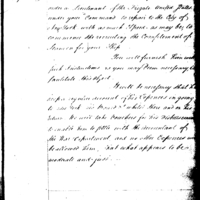 under a Lieutenant of the Frigate United States
under your Command to repair to the City of
New York with as much Speed as may be, to
commence the recruiting the Complement of
Seamen for your Ship.
You will furnish him with
such Instructions as you may deem necessary to
facilitate this object.
It will be necessary that he
keeps a account of his Expences in going
to New York in Recruits while there and on his
return. He will take Vouchers for his disbursements
to enable him to settle with the accountant of
the War Department and no other Expences
be allowed him, but what appears to be
moderate and just.